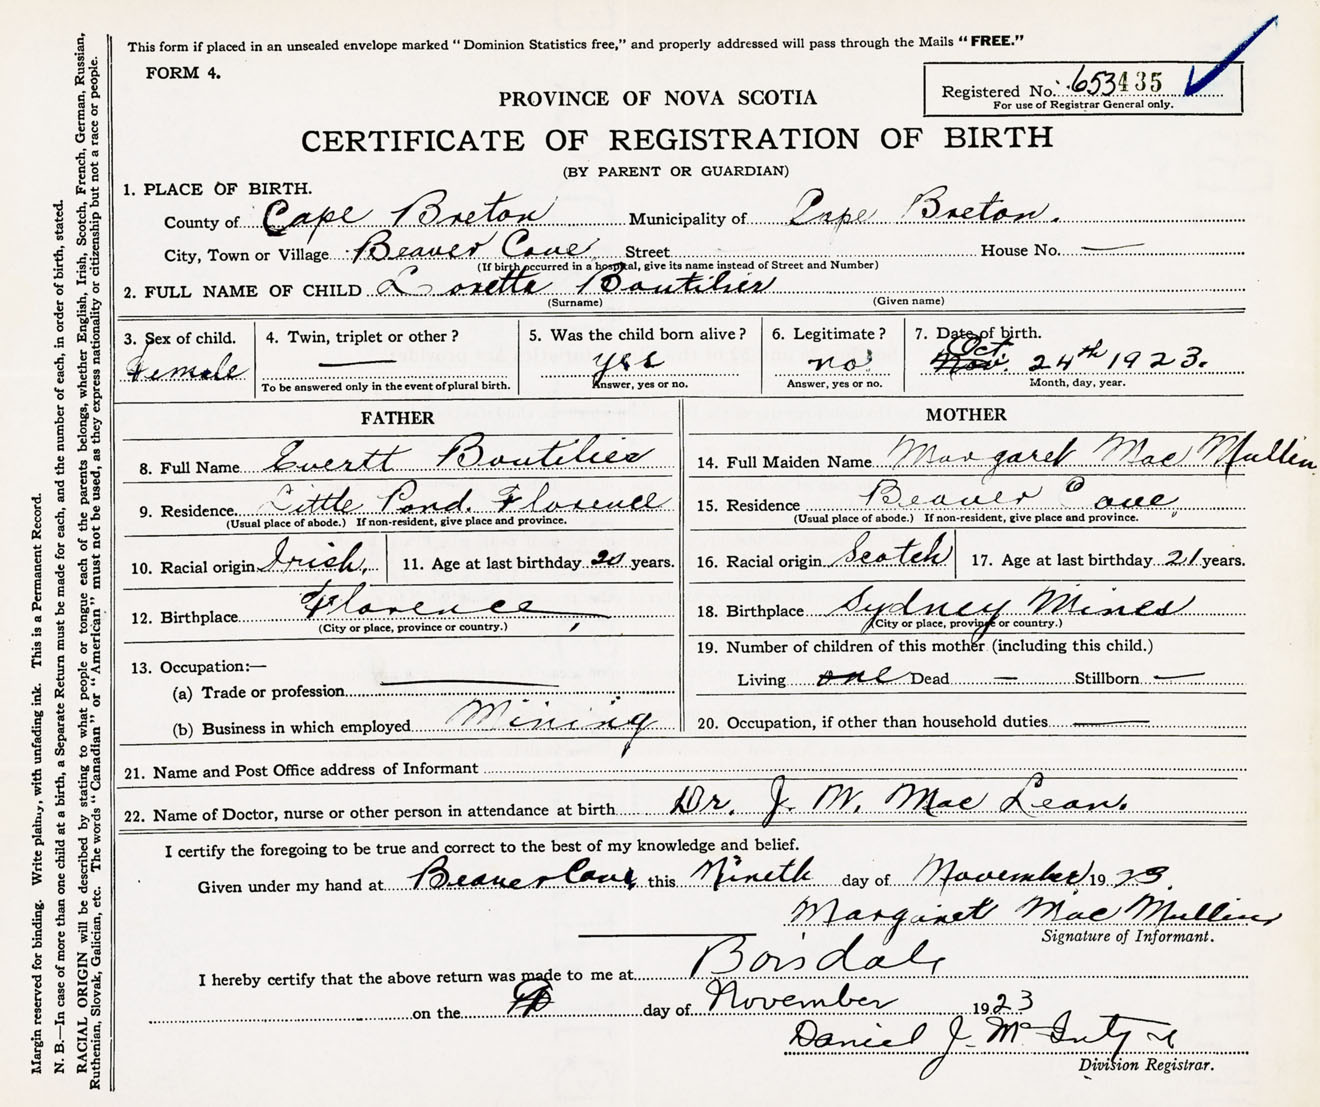 This form if placed in an unsealed envelope marked "Dominion Statistics free," and properly addressed will pass through the Mails "FREE."
FORM 4.
Registered No. 653435
For use of Registrar General only.
PROVINCE OF NOVA SCOTIA
CERTIFICATE OF REGISTRATION OF BIRTH
(BY PARENT OR GUARDIAN)
1. PLACE OF BIRTH.
County of Cape Breton Municipality of Cape Breton.
City, Town or Village Beaver Cove Street House No. —
(If birth occurred in a hospital, give its name instead of Street and Number)
2. FULL NAME OF CHILD Loretta Boutilier
(Surname) (Given name)
3. Sex of child. 4. Twin, triplet or other? 5. Was the child born alive? 6. Legitimate? 7. Date of birth.
Female — yes no Nov. Oct. 24th 1923.
To be answered only in the event of plural birth. Answer, yes or no. Answer, yes or no. Month, day, year.
FATHER
8. Full Name Evertt Boutilier
9. Residence Little Pond. Florence
(Usual place of abode.) If non-resident, give place and province.
10. Racial origin Irish, 11. Age at last birthday years.
12. Birthplace Florence,
(City or place, province or country.)
13. Occupation:—
(a) Trade or profession —
(b) Business in which employed Mining
MOTHER
14. Full Maiden Name Margaret Mac Mullin
15. Residence Beaver Cove,
(Usual place of abode.) If non-resident, give place and province.
16. Racial origin Scotch 17. Age at last birthday 21 years.
18. Birthplace Sydney Mines
(City or place, province or country.)
19. Number of children of this mother (including this child.)
Living one Dead — Stillborn —
20. Occupation, if other than household duties —
21. Name and Post Office address of Informant
22. Name of Doctor, nurse or other person in attendance at birth Dr. J. W. Mac Lean.
I certify the foregoing to be true and correct to the best of my knowledge and belief.
Given under my hand at Beaver Cove, this Nineth day of November 1923.
Margaret Mac Mullin
Signature of Informant.
I hereby certify that the above return was made to me at Boisdale
on the day of November 1923
Daniel J. McIntyre
Division Registrar.
Margin reserved for binding. Write plainly, with unfading ink. This is a Permanent Record.
N. B.—In case of more than one child at a birth, a Separate Return must be made for each, and the number of each, in order of birth, stated.
RACIAL ORIGIN will be described by stating to what people or tongue each of the parents belongs, whether English, Irish, Scotch, French, German, Russian,
Ruthenian, Slovak, Galician, etc. The words "Canadian" or "American" must not be used, as they express nationality or citizenship but not a race or people.